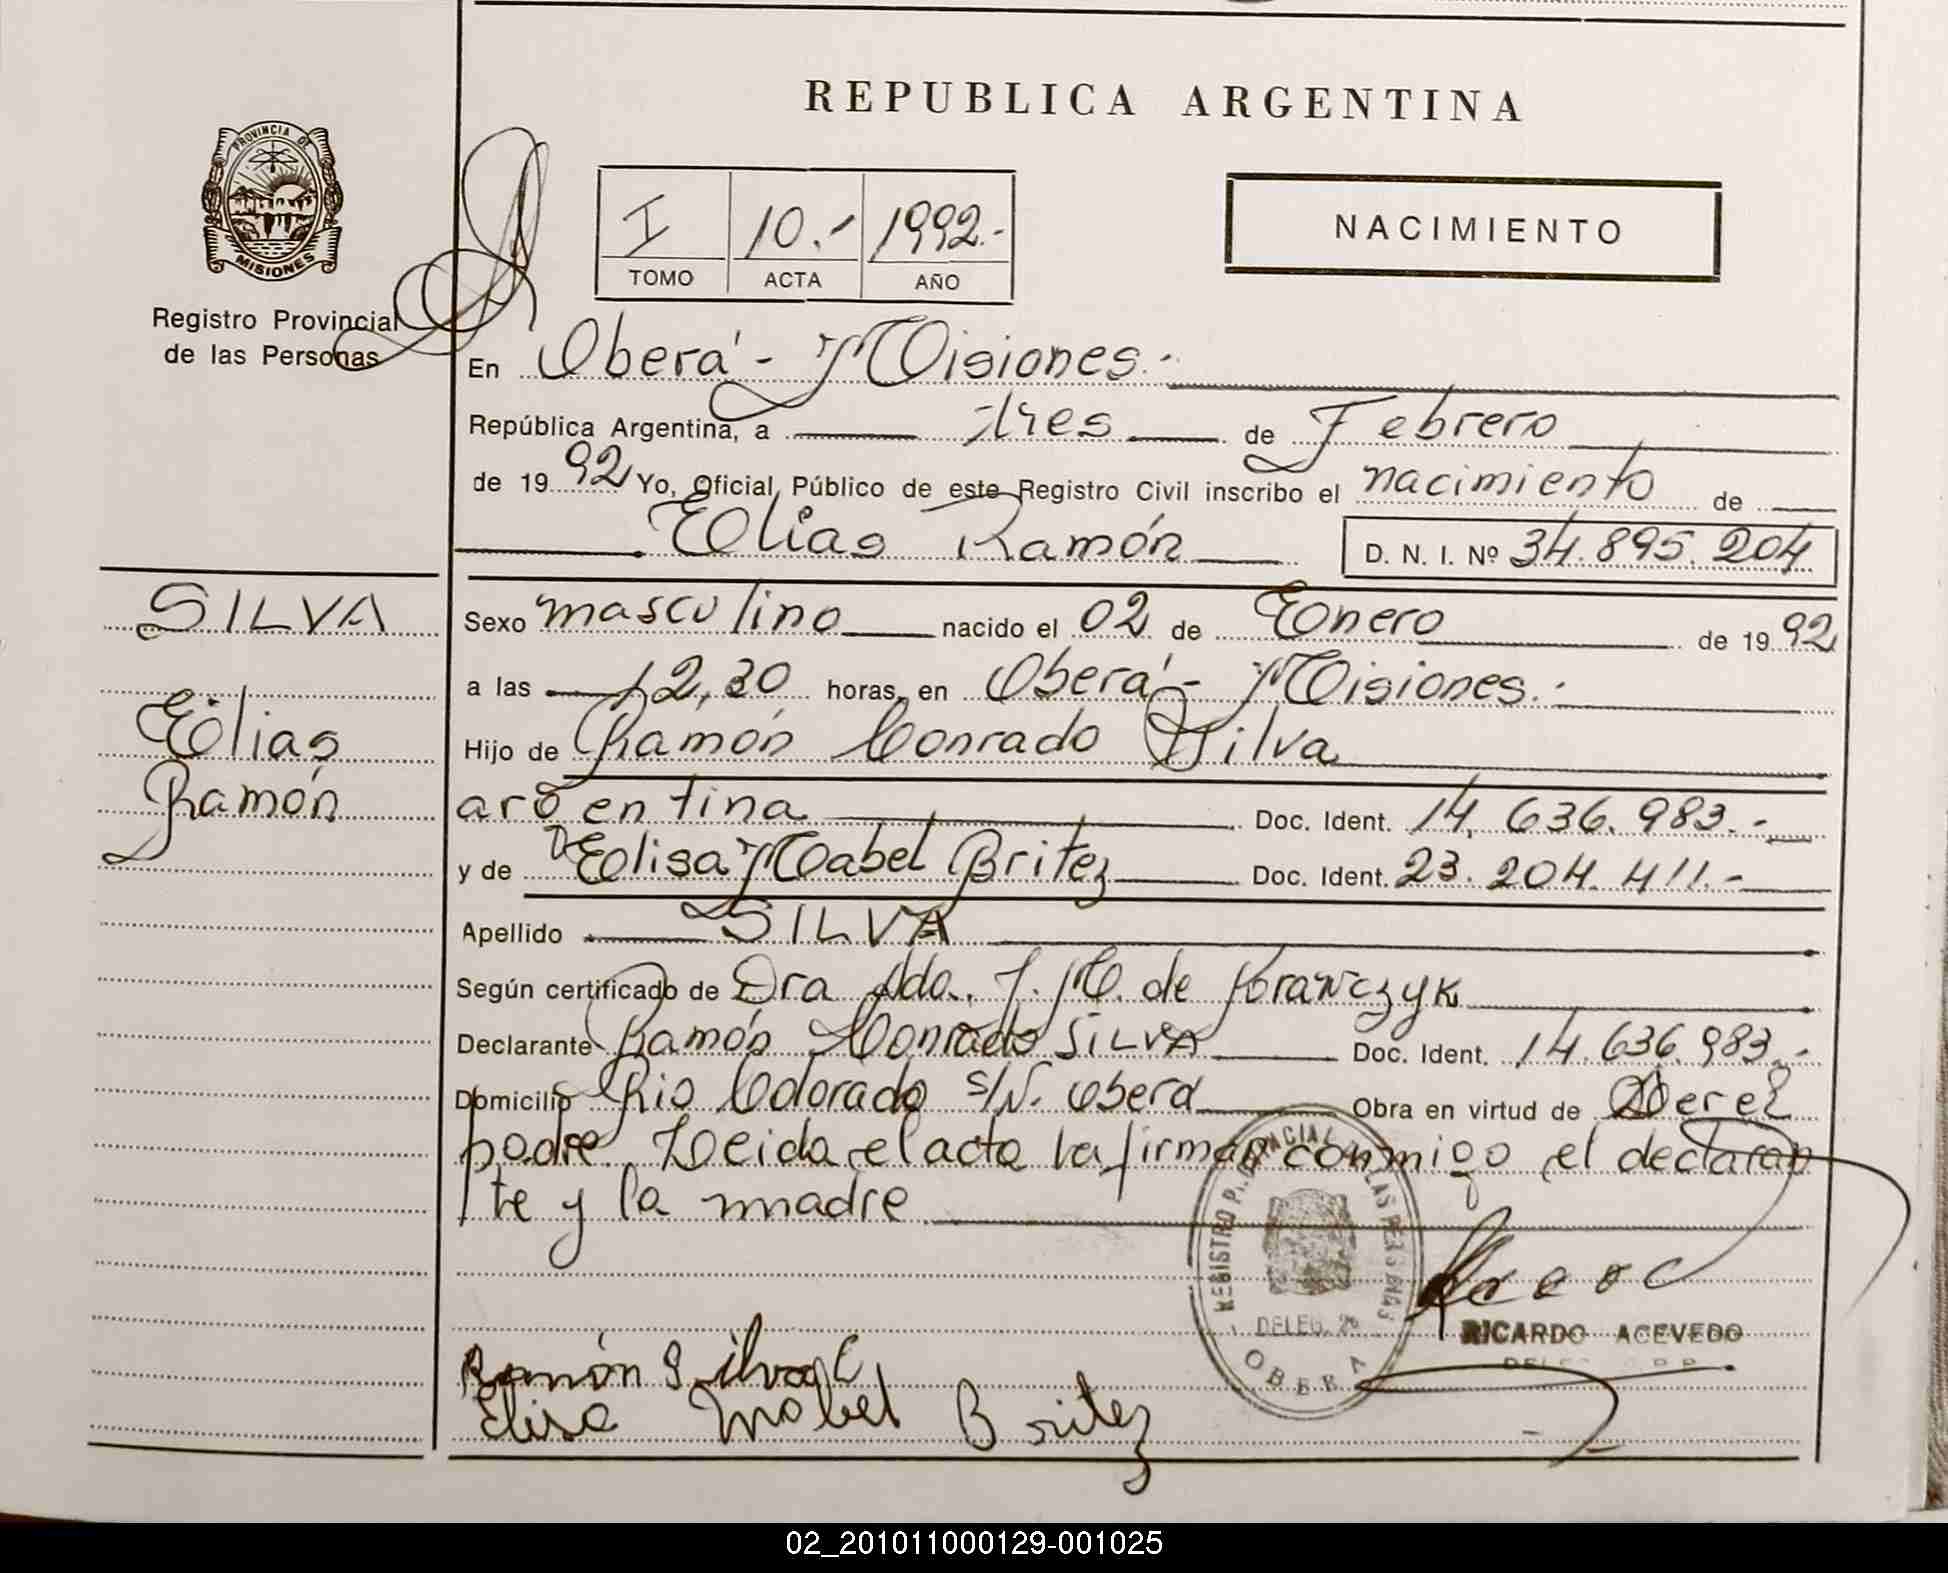 REPUBLICA ARGENTINA
PROVINCIA DE
MISIONES
Registro Provincial
de las Personas
I 10.- 1992.-
TOMO ACTA AÑO
NACIMIENTO
En Oberá - Misiones.-
República Argentina, a tres de Febrero
de 1992 Yo, Oficial Público de este Registro Civil inscribo el nacimiento de
Elias Ramón D. N. I. Nº 34.895.204
SILVA
Elias
Ramón
Sexo masculino nacido el 02 de Enero de 1992
a las 12,30 horas, en Oberá - Misiones.-
Hijo de Ramón Conrado Silva
argentina Doc. Ident. 14.636.983.-
y de Elisa Mabel Britez Doc. Ident. 23.204.411.-
Apellido SILVA
Según certificado de Dra Ada. J. M. de Krawczyk
Declarante Ramón Conrado SILVA Doc. Ident. 14.636.983.-
Domicilio Rio Colorado s/N. Oberá Obra en virtud de Ser el
padre. Leida el acta la firman conmigo el declaran
te y la madre
REGISTRO PROVINCIAL LAS PERSONAS
DELEG.
OBERA
RICARDO ACEVEDO
Ramón Silva C
Elisa Mabel Britez
02_201011000129-001025